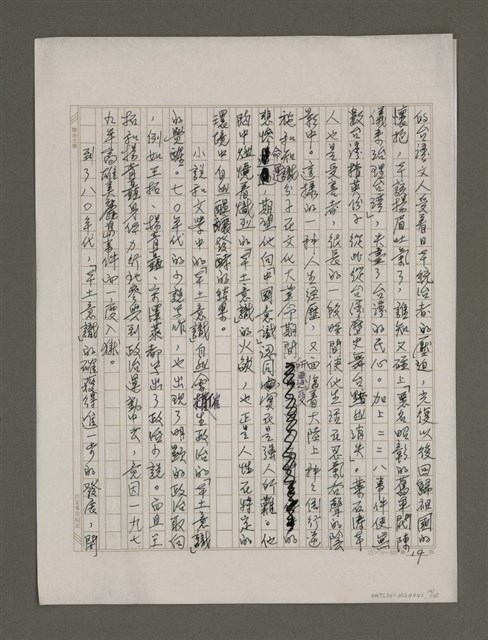 的台灣文人受着日本統治者的壓迫，光復以後回歸祖國的
懷抱，本該揚眉吐氣了，誰知又碰上「惡名昭彰的萬軍閥陳
儀來治理台灣」，失盡了台灣的民心。加上二二八事件使無
數台灣精英份子從此從台灣歷史舞台消失。葉石濤本
人也是受害者，很長的一段時間使他生活在忍氣吞聲的陰
影中。這樣的一種人生經歷，又面臨着大陸上種種倒行逆
施和知識份子在文化大革命期間所遭受的
悲慘命運，期望他向中國意識認同實在是強人所難。他
胸中燃燒着熾烈的「本土意識」的火燄，也正是人性在特定的
環境中自由醞釀發酵的結果。
小說和文學中的「本土意識」自然會催生政治的「本土意識」
的覺醒。七〇年代的小說創作，也出現了明顯的政治取向
，例如王拓、楊青矗、宋澤萊都寫出了政治小說。而且王
拓和楊青矗身体力行地參與到政治運動中去，竟因一九七
九年高雄美麗島事件而一度入獄。
到了八〇年代，「本土意識」的確獲得進一步的發展，開
14